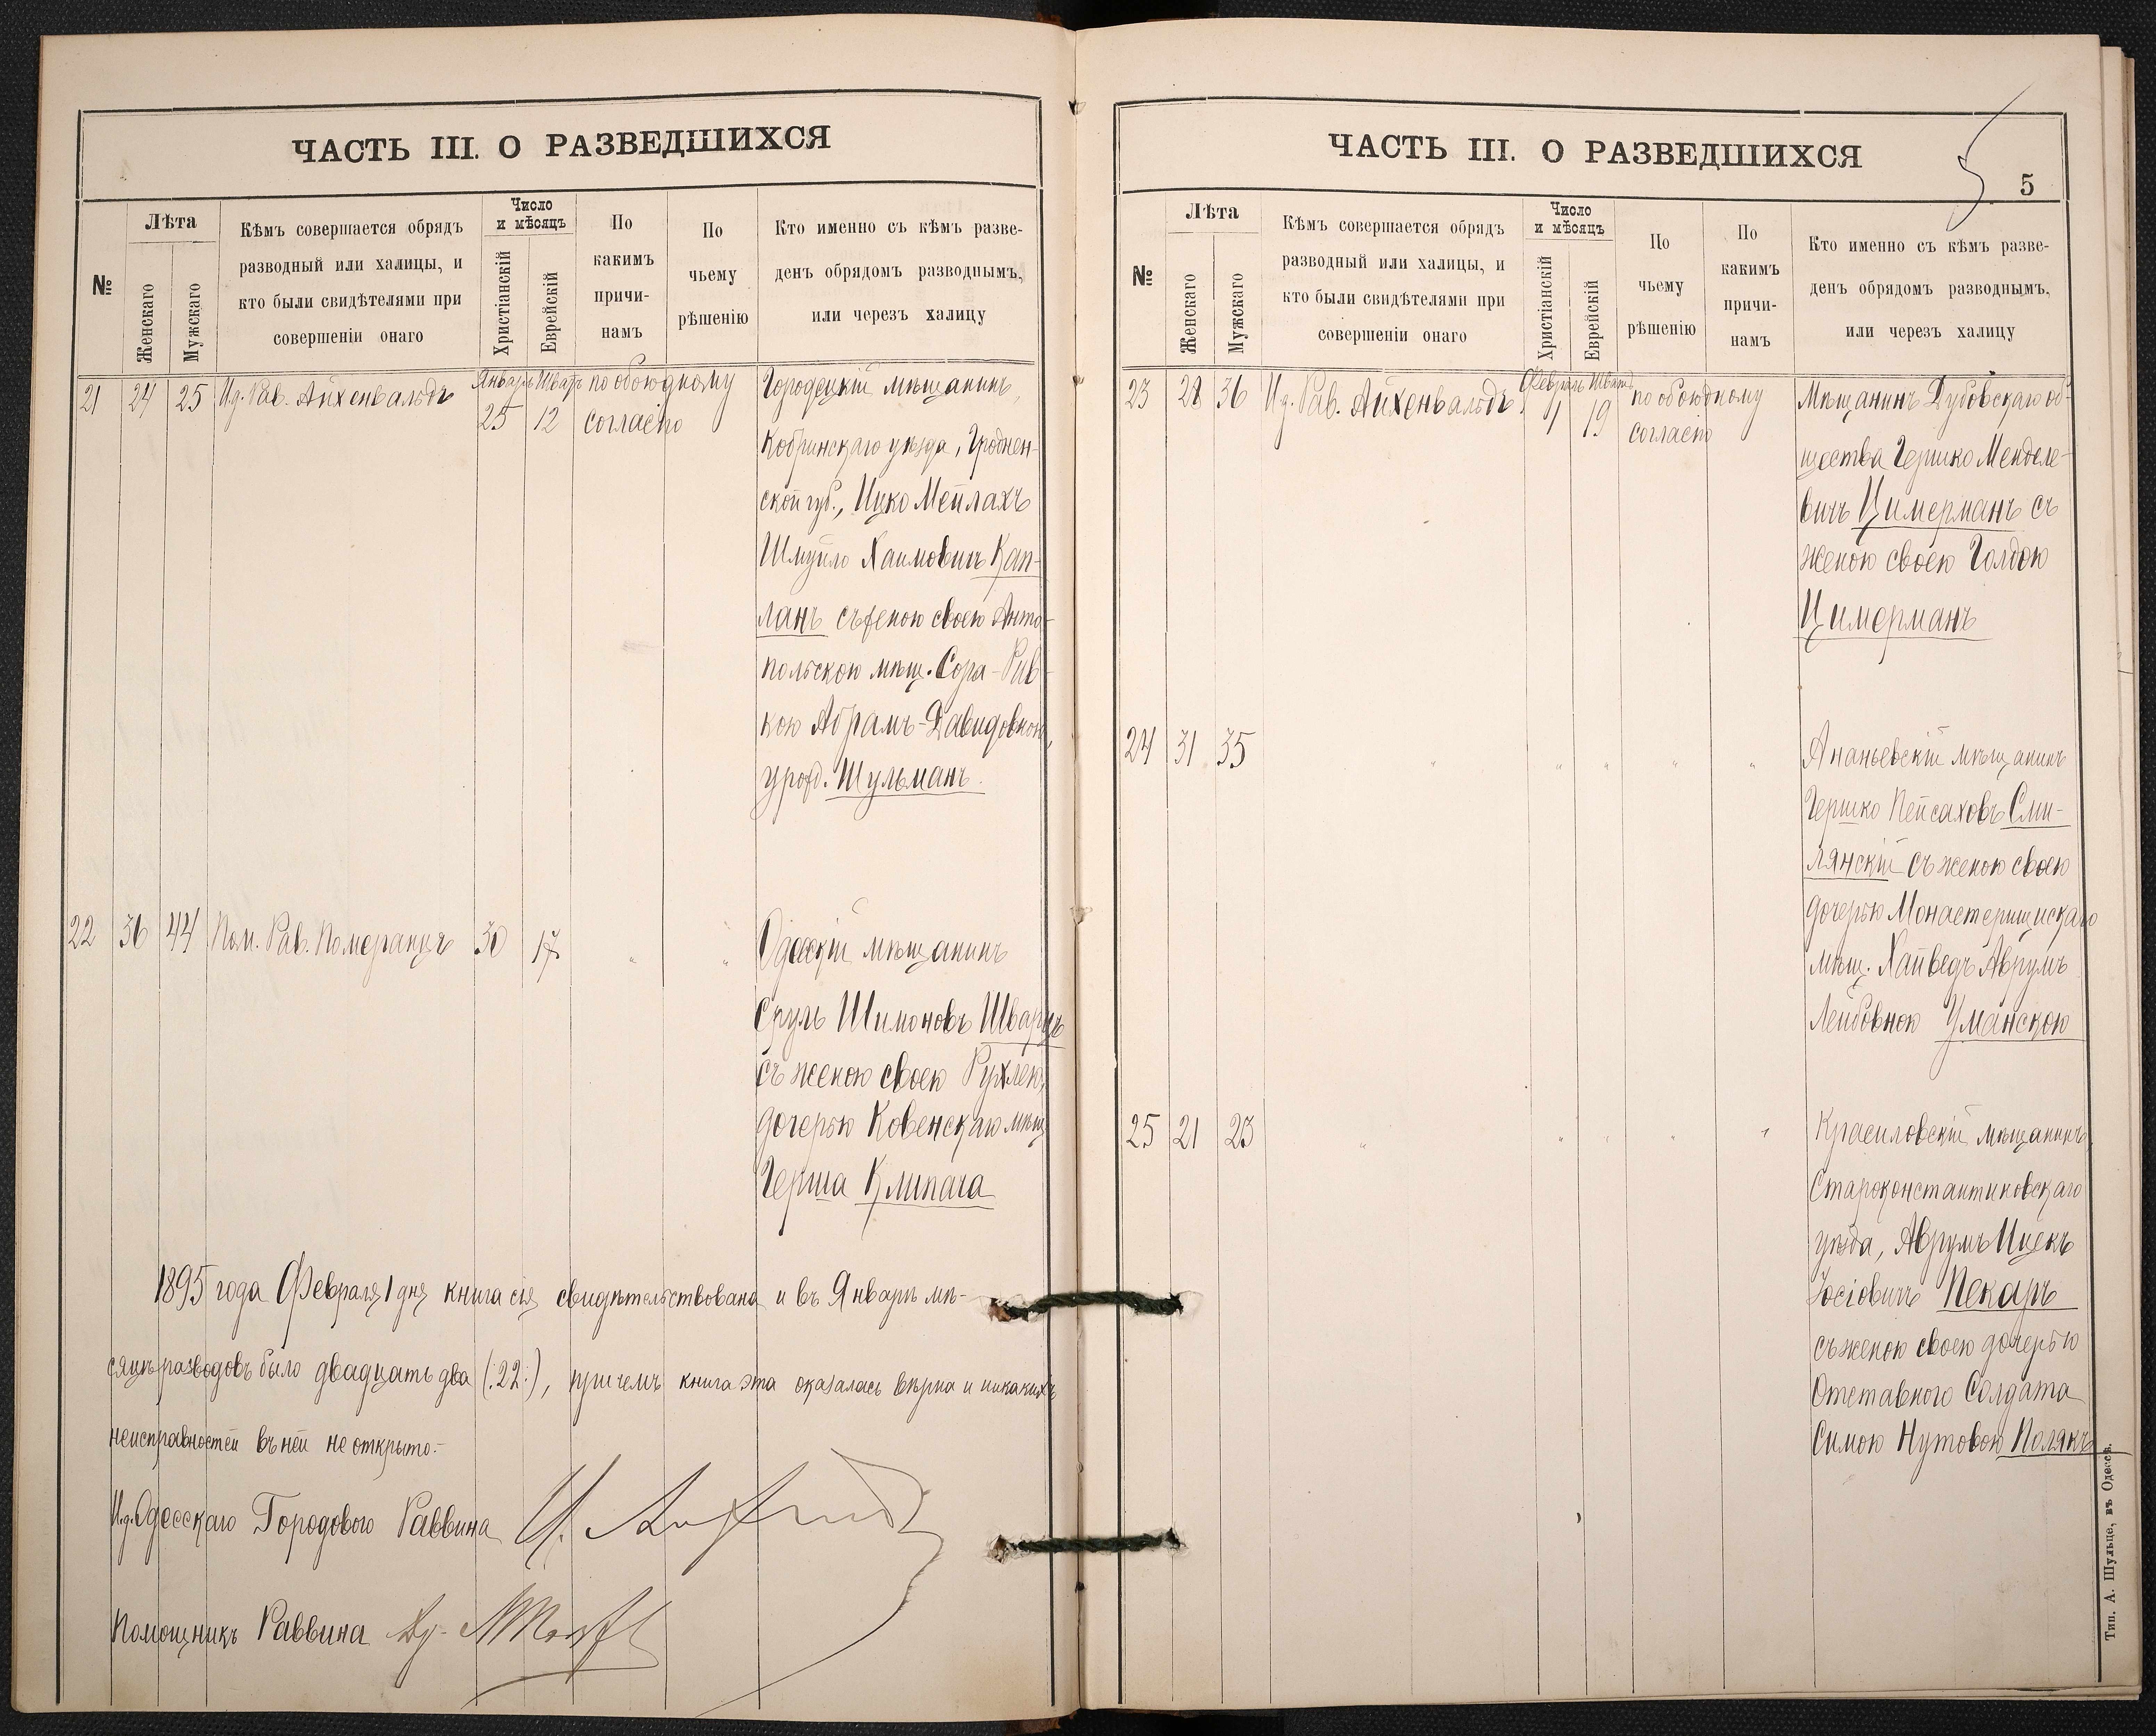 ЧАСТЬ III. О РАЗВЕДШИХСЯ
№
Лѣта
Женскаго
Мужскаго
Кѣмъ совершается обрядъ
разводный или халицы, и
кто были свидѣтелями при
совершеніи онаго
Число
и мѣсяцъ
Христіанскій
Еврейскій
По
какимъ
причи-
намъ
По
чьему
рѣшенію
Кто именно съ кѣмъ разве-
денъ обрядомъ разводнымъ,
или черезъ халицу
21 24 25 И.д. Рав. Айхенвальдъ Январь Шват по обоюдному Городецкій мѣщанинъ,
25 12 согласію
Кобринскаго уѣзда, Гроднен-
ской губ., Ицко Мейлахъ
Шмуйло Хаимовичъ Кап-
ланъ съ женою своею Анто-
польскою мѣщ. Сора-Рив-
кою Абрамъ-Давидовною,
урожд. Шульманъ.
22 36 44 Пом. Рав. Померанцъ 30 17 " " Одесскій мѣщанинъ
Сруль Шимоновъ Шварцъ
съ женою своею Рухлею,
дочерью Ковенскаго мѣщ
Герша Клипача
1895 года Февраля 1 дня книга сія свидѣтельствована и въ Январѣ мѣ-
сяцѣ разводовъ было двадцать два (:22:), причемъ книга эта оказалась вѣрна и никакихъ
неисправностей въ ней не открыто.-
И.д. Одесскаго Городового Раввина
Помощникъ Раввина
ЧАСТЬ III. О РАЗВЕДШИХСЯ
5
5
№
Лѣта
Женскаго
Мужскаго
Кѣмъ совершается обрядъ
разводный или халицы, и
кто были свидѣтелями при
совершеніи онаго
Число
и мѣсяцъ
Христіанскій
Еврейскій
По
чьему
рѣшенію
По
какимъ
причи-
намъ
Кто именно съ кѣмъ разве-
денъ обрядомъ разводнымъ,
или черезъ халицу
23 28 36 И.д. Рав. Айхенвальдъ Февраль Шват по обоюдному Мѣщанинъ Дубовскаго об-
1 19 согласію
щества Гершко Менделе-
вичъ Цимерманъ съ
женою своею Голдою
Цимерманъ
24 31 35 " " " " " Ананьевскій мѣщанинъ
Гершко Пейсаховъ Сми-
лянскій съ женою своею
дочерью Монастерищискаго
мѣщ. Хайведъ Аврумъ
Лейбовною Уманскою
25 21 23 " " " " " Красиловскій мѣщанинъ,
Староконстантиновскаго
уѣзда, Аврумъ Ицекъ
Іосіовичъ Пекарь
съ женою своею дочерью
Отставного Солдата
Симою Нутовою Полякъ
Тип. А. Шульце, въ Одессѣ.